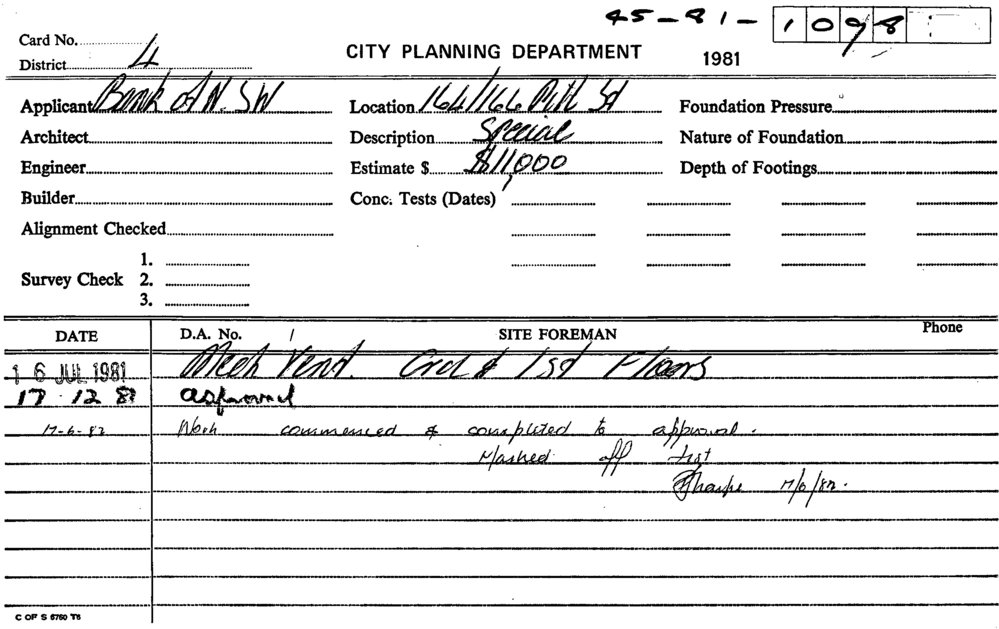 45-81- 1098
Card No.
District 4
CITY PLANNING DEPARTMENT 1981
Applicant Bank of N. SW Location 164/166 Pitt St Foundation Pressure
Architect Description Special Nature of Foundation
Engineer Estimate $ $11,000 Depth of Footings
Builder Conc. Tests (Dates)
Alignment Checked
1.
Survey Check 2.
3.
DATE D.A. No. SITE FOREMAN Phone
16 JUL 1981 Mech Vent. Grd & 1st Floors
17 12 81 approved
17-6-82 Work commenced & completed to approval.
Marked off list
Sharpe 17/6/82.
C OF S 6760 T6